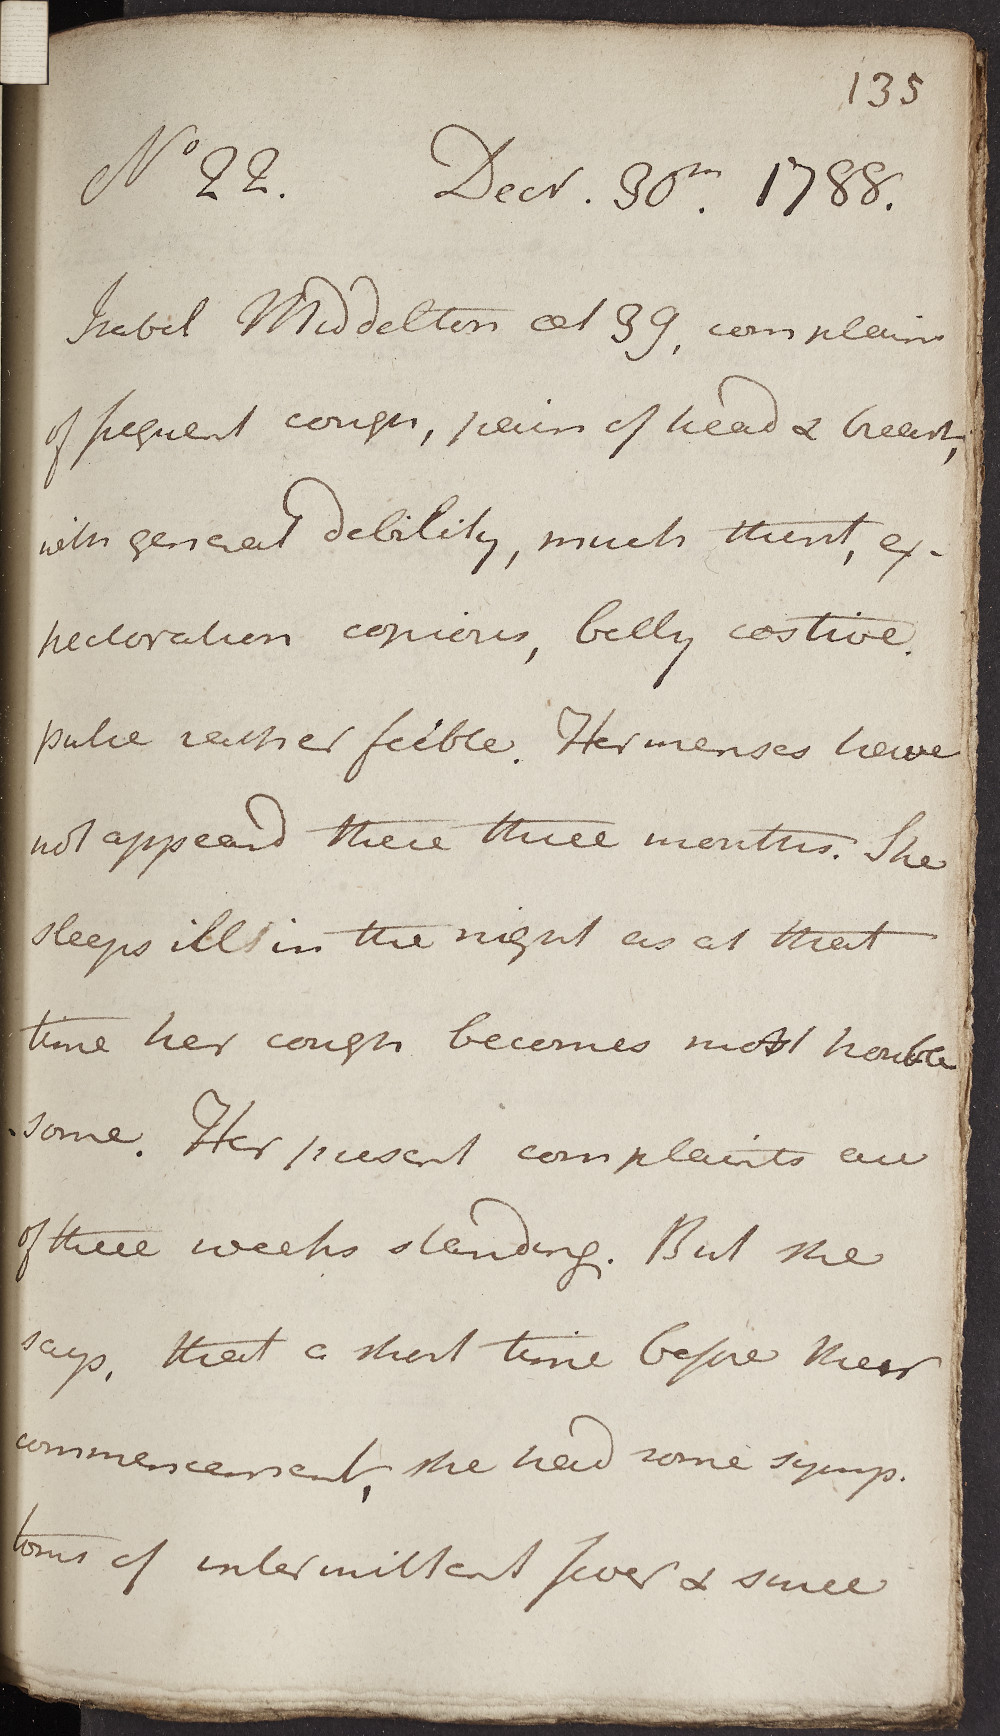 135
No 22. Decr. 30th. 1788.
Isabel Middelton aet 39, complains
of frequent cough, pain of head & breast,
with general debility, much thirst, ex-
pectoration copious, belly costive.
pulse rather feeble. Her menses have
not appeard these three months. She
sleeps ill in the night as at that
time her cough becomes most trouble
some. Her present complaints are
of three weeks standing. But she
says, that a short time before their
commencement, she had some symp.
toms of intermittent fever & since